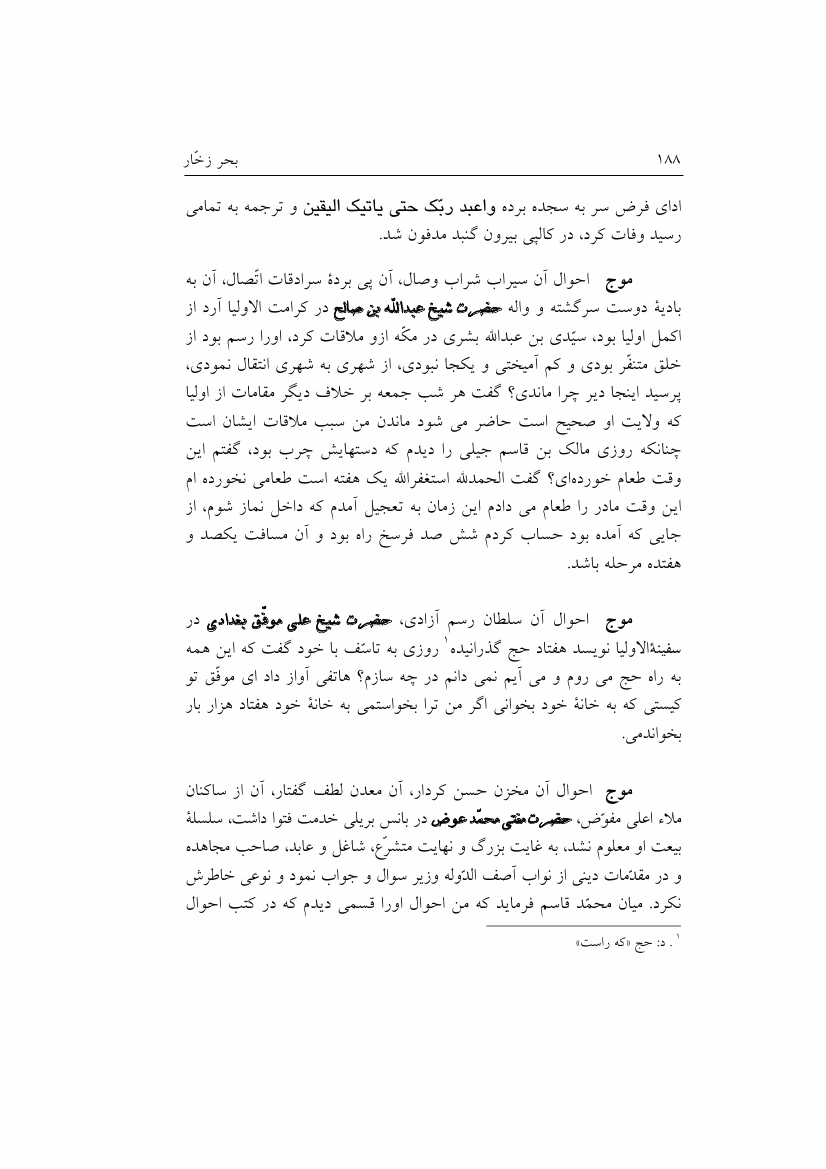 ۱۸۸ بحر زخّار
ادای فرض سر به سجده برده واعبد ربّک حتی یاتیک الیقین و ترجمه به تمامی
رسید وفات کرد، در کالپی بیرون گنبد مدفون شد.
موج احوال آن سیراب شراب وصال، آن پی بردهٔ سرادقات اتّصال، آن به
بادیهٔ دوست سرگشته و واله حضرت شیخ عبداللّه بن صالح در کرامت الاولیا آرد از
اکمل اولیا بود، سیّدی بن عبدالله بشری در مکّه ازو ملاقات کرد، اورا رسم بود از
خلق متنفّر بودی و کم آمیختی و یکجا نبودی، از شهری به شهری انتقال نمودی،
پرسید اینجا دیر چرا ماندی؟ گفت هر شب جمعه بر خلاف دیگر مقامات از اولیا
که ولایت او صحیح است حاضر می شود ماندن من سبب ملاقات ایشان است
چنانکه روزی مالک بن قاسم جیلی را دیدم که دستهایش چرب بود، گفتم این
وقت طعام خورده‌ای؟ گفت الحمدلله استغفرالله یک هفته است طعامی نخورده ام
این وقت مادر را طعام می دادم این زمان به تعجیل آمدم که داخل نماز شوم، از
جایی که آمده بود حساب کردم شش صد فرسخ راه بود و آن مسافت یکصد و
هفتده مرحله باشد.
موج احوال آن سلطان رسم آزادی، حضرت شیخ علی موفّق بغدادی در
سفینةالاولیا نویسد هفتاد حج گذرانیده۱ روزی به تاسّف با خود گفت که این همه
به راه حج می روم و می آیم نمی دانم در چه سازم؟ هاتفی آواز داد ای موفّق تو
کیستی که به خانهٔ خود بخوانی اگر من ترا بخواستمی به خانهٔ خود هفتاد هزار بار
بخواندمی.
موج احوال آن مخزن حسن کردار، آن معدن لطف گفتار، آن از ساکنان
ملاء اعلی مفوّض، حضرت مفتی محمّد عوض در بانس بریلی خدمت فتوا داشت، سلسلهٔ
بیعت او معلوم نشد، به غایت بزرگ و نهایت متشرّع، شاغل و عابد، صاحب مجاهده
و در مقدّمات دینی از نواب آصف الدّوله وزیر سوال و جواب نمود و نوعی خاطرش
نکرد. میان محمّد قاسم فرماید که من احوال اورا قسمی دیدم که در کتب احوال
۱ . د: حج «که راست»